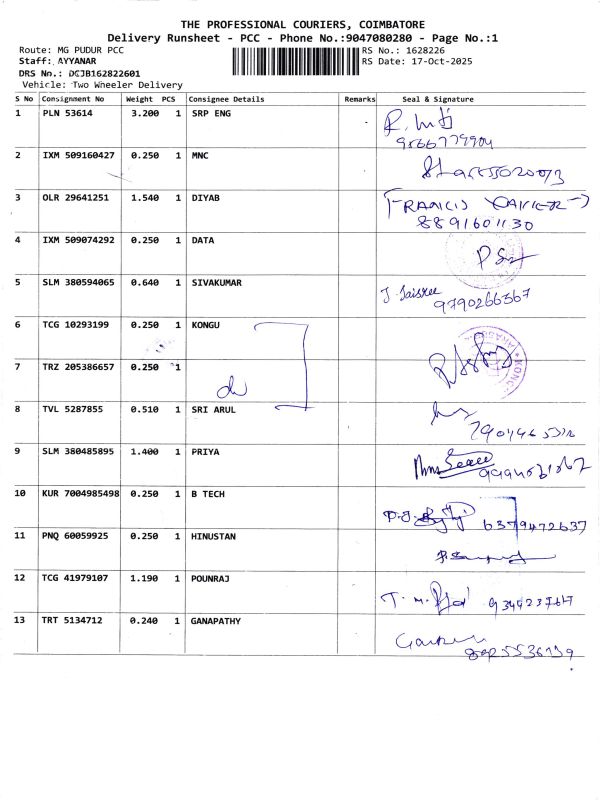 THE PROFESSIONAL COURIERS, COIMBATORE
Delivery Runsheet - PCC - Phone No.:9047080280 - Page No.:1
Route: MG PUDUR PCC RS No.: 1628226
Staff: AYYANAR RS Date: 17-Oct-2025
DRS No.: DCJB162822601
Vehicle: Two Wheeler Delivery
S No Consignment No Weight PCS Consignee Details Remarks Seal & Signature
1 PLN 53614 3.200 1 SRP ENG
2 IXM 509160427 0.250 1 MNC
3 OLR 29641251 1.540 1 DIYAB FRANCIS XAVIER
8891601130
4 IXM 509074292 0.250 1 DATA
5 SLM 380594065 0.640 1 SIVAKUMAR
9790266367
6 TCG 10293199 0.250 1 KONGU
7 TRZ 205386657 0.250 1
8 TVL 5287855 0.510 1 SRI ARUL
9 SLM 380485895 1.400 1 PRIYA
10 KUR 7004985498 0.250 1 B TECH 6379472637
11 PNQ 60059925 0.250 1 HINUSTAN
12 TCG 41979107 1.190 1 POUNRAJ
13 TRT 5134712 0.240 1 GANAPATHY